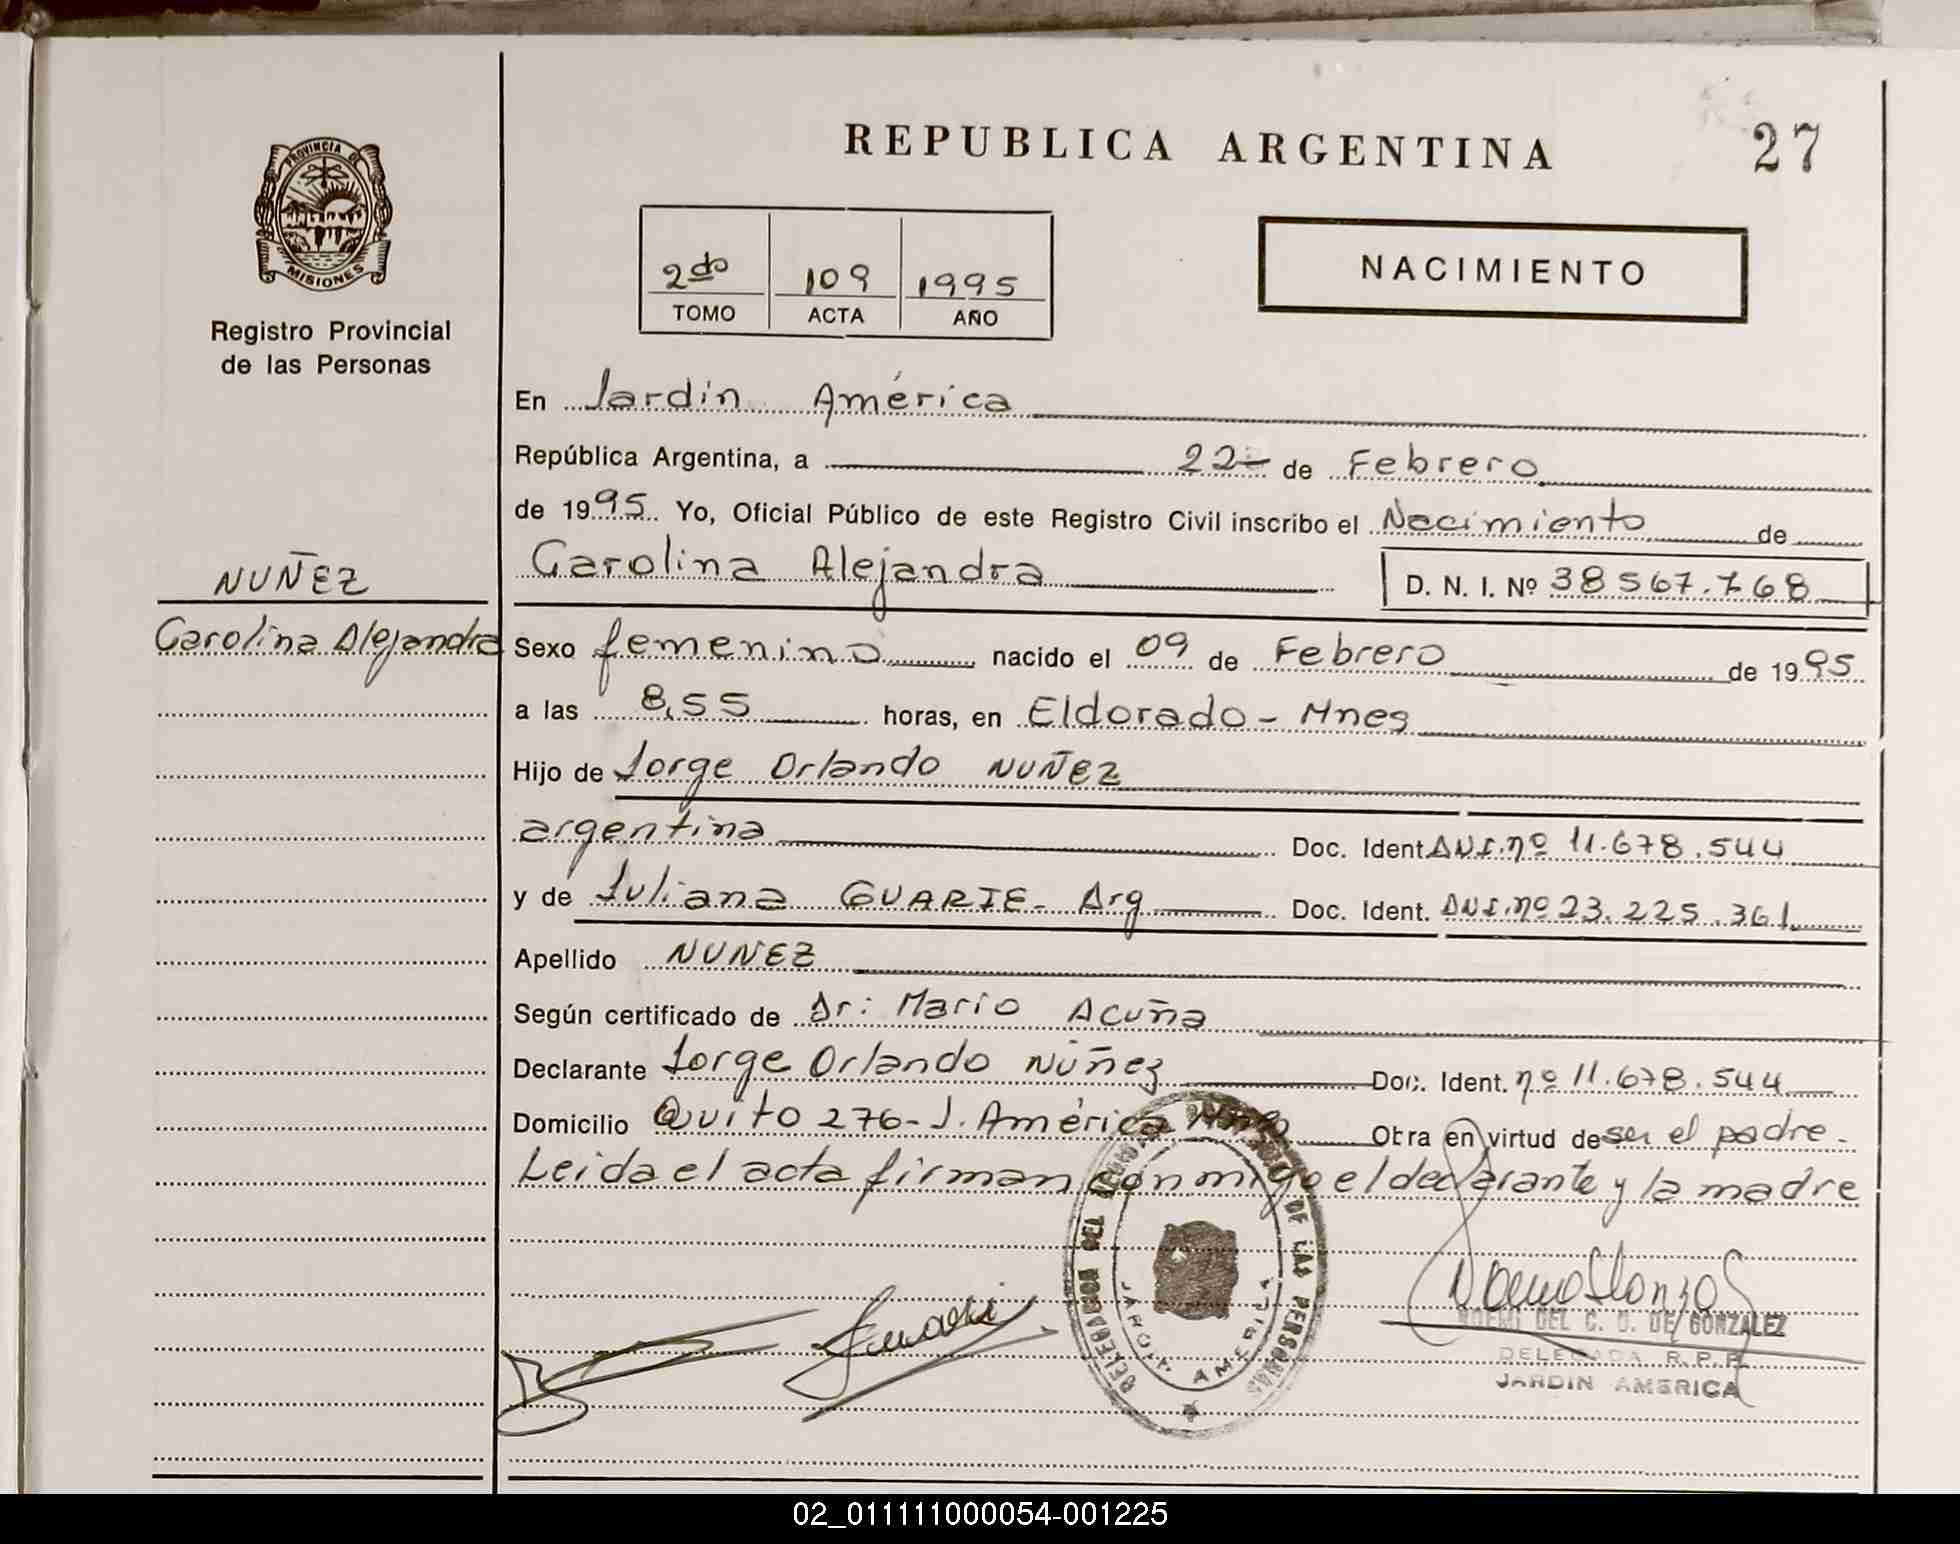 REPUBLICA ARGENTINA
27
PROVINCIA DE
MISIONES
Registro Provincial
de las Personas
2do 109 1995
TOMO ACTA AÑO
NACIMIENTO
En Jardin América
República Argentina, a 22 de Febrero
de 1995. Yo, Oficial Público de este Registro Civil inscribo el Nacimiento de
Carolina Alejandra D. N. I. Nº 38567.768
NUÑEZ
Carolina Alejandra
Sexo femenino nacido el 09 de Febrero de 1995
a las 8,55 horas, en Eldorado - Mnes
Hijo de Jorge Orlando NUÑEZ
argentina Doc. Ident. DNI. nº 11.678.544
y de Juliana GUARIE - Arg Doc. Ident. DNI. nº 23.225.361
Apellido NUNEZ
Según certificado de Dr: Mario Acuña
Declarante Jorge Orlando Núñez Doc. Ident. nº 11.678.544
Domicilio Quito 276 - J. América Mnes Otra en virtud de ser el padre.
Leida el acta firman conmigo el declarante y la madre
DE LAS PERSONAS
DELEGACION
JARDIN AMERICA
NOEMI DEL C. O. DE GONZALEZ
DELEGADA R.P.P.
JARDIN AMERICA
02_011111000054-001225